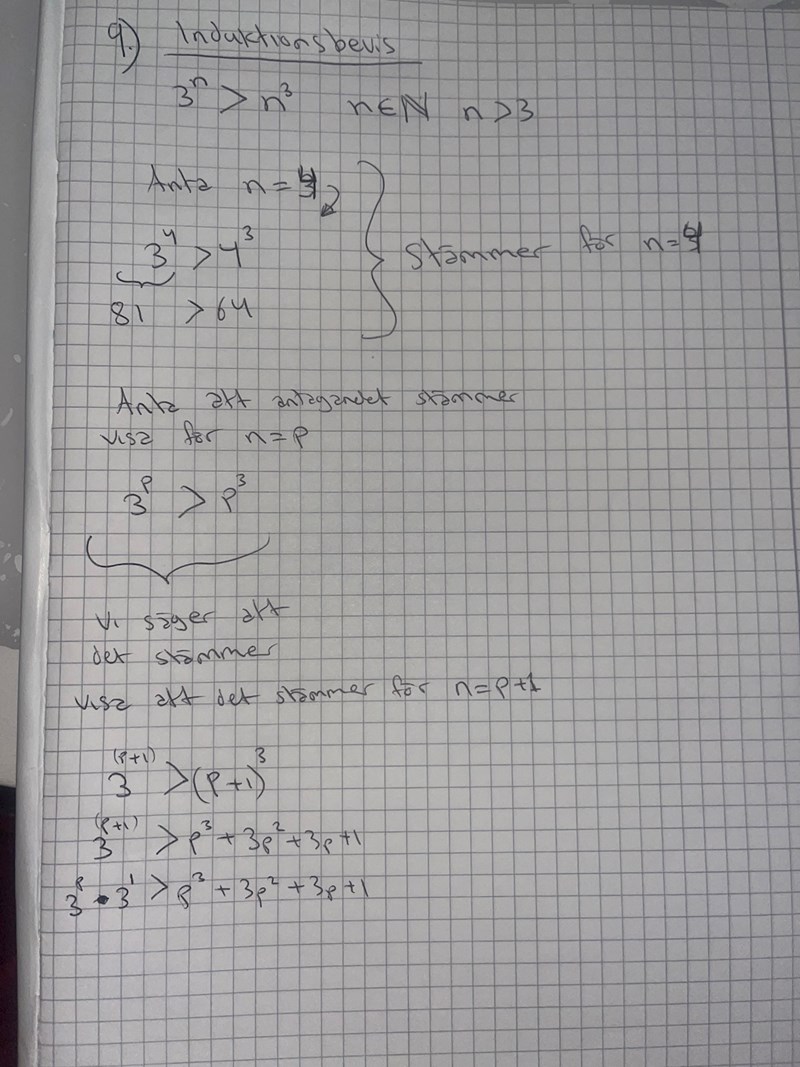 9.) Induktionsbevis
3ⁿ > n³ n∈ℕ n>3
Anta n=4
3⁴ > 4³
Stämmer för n=4
81 > 64
Anta att antagandet stämmer
visa för n=p
3ᵖ > p³
Vi säger att
det stämmer
visa att det stämmer för n=p+1
3⁽ᵖ⁺¹⁾ > (p+1)³
3⁽ᵖ⁺¹⁾ > p³ + 3p² + 3p + 1
3ᵖ • 3¹ > p³ + 3p² + 3p + 1